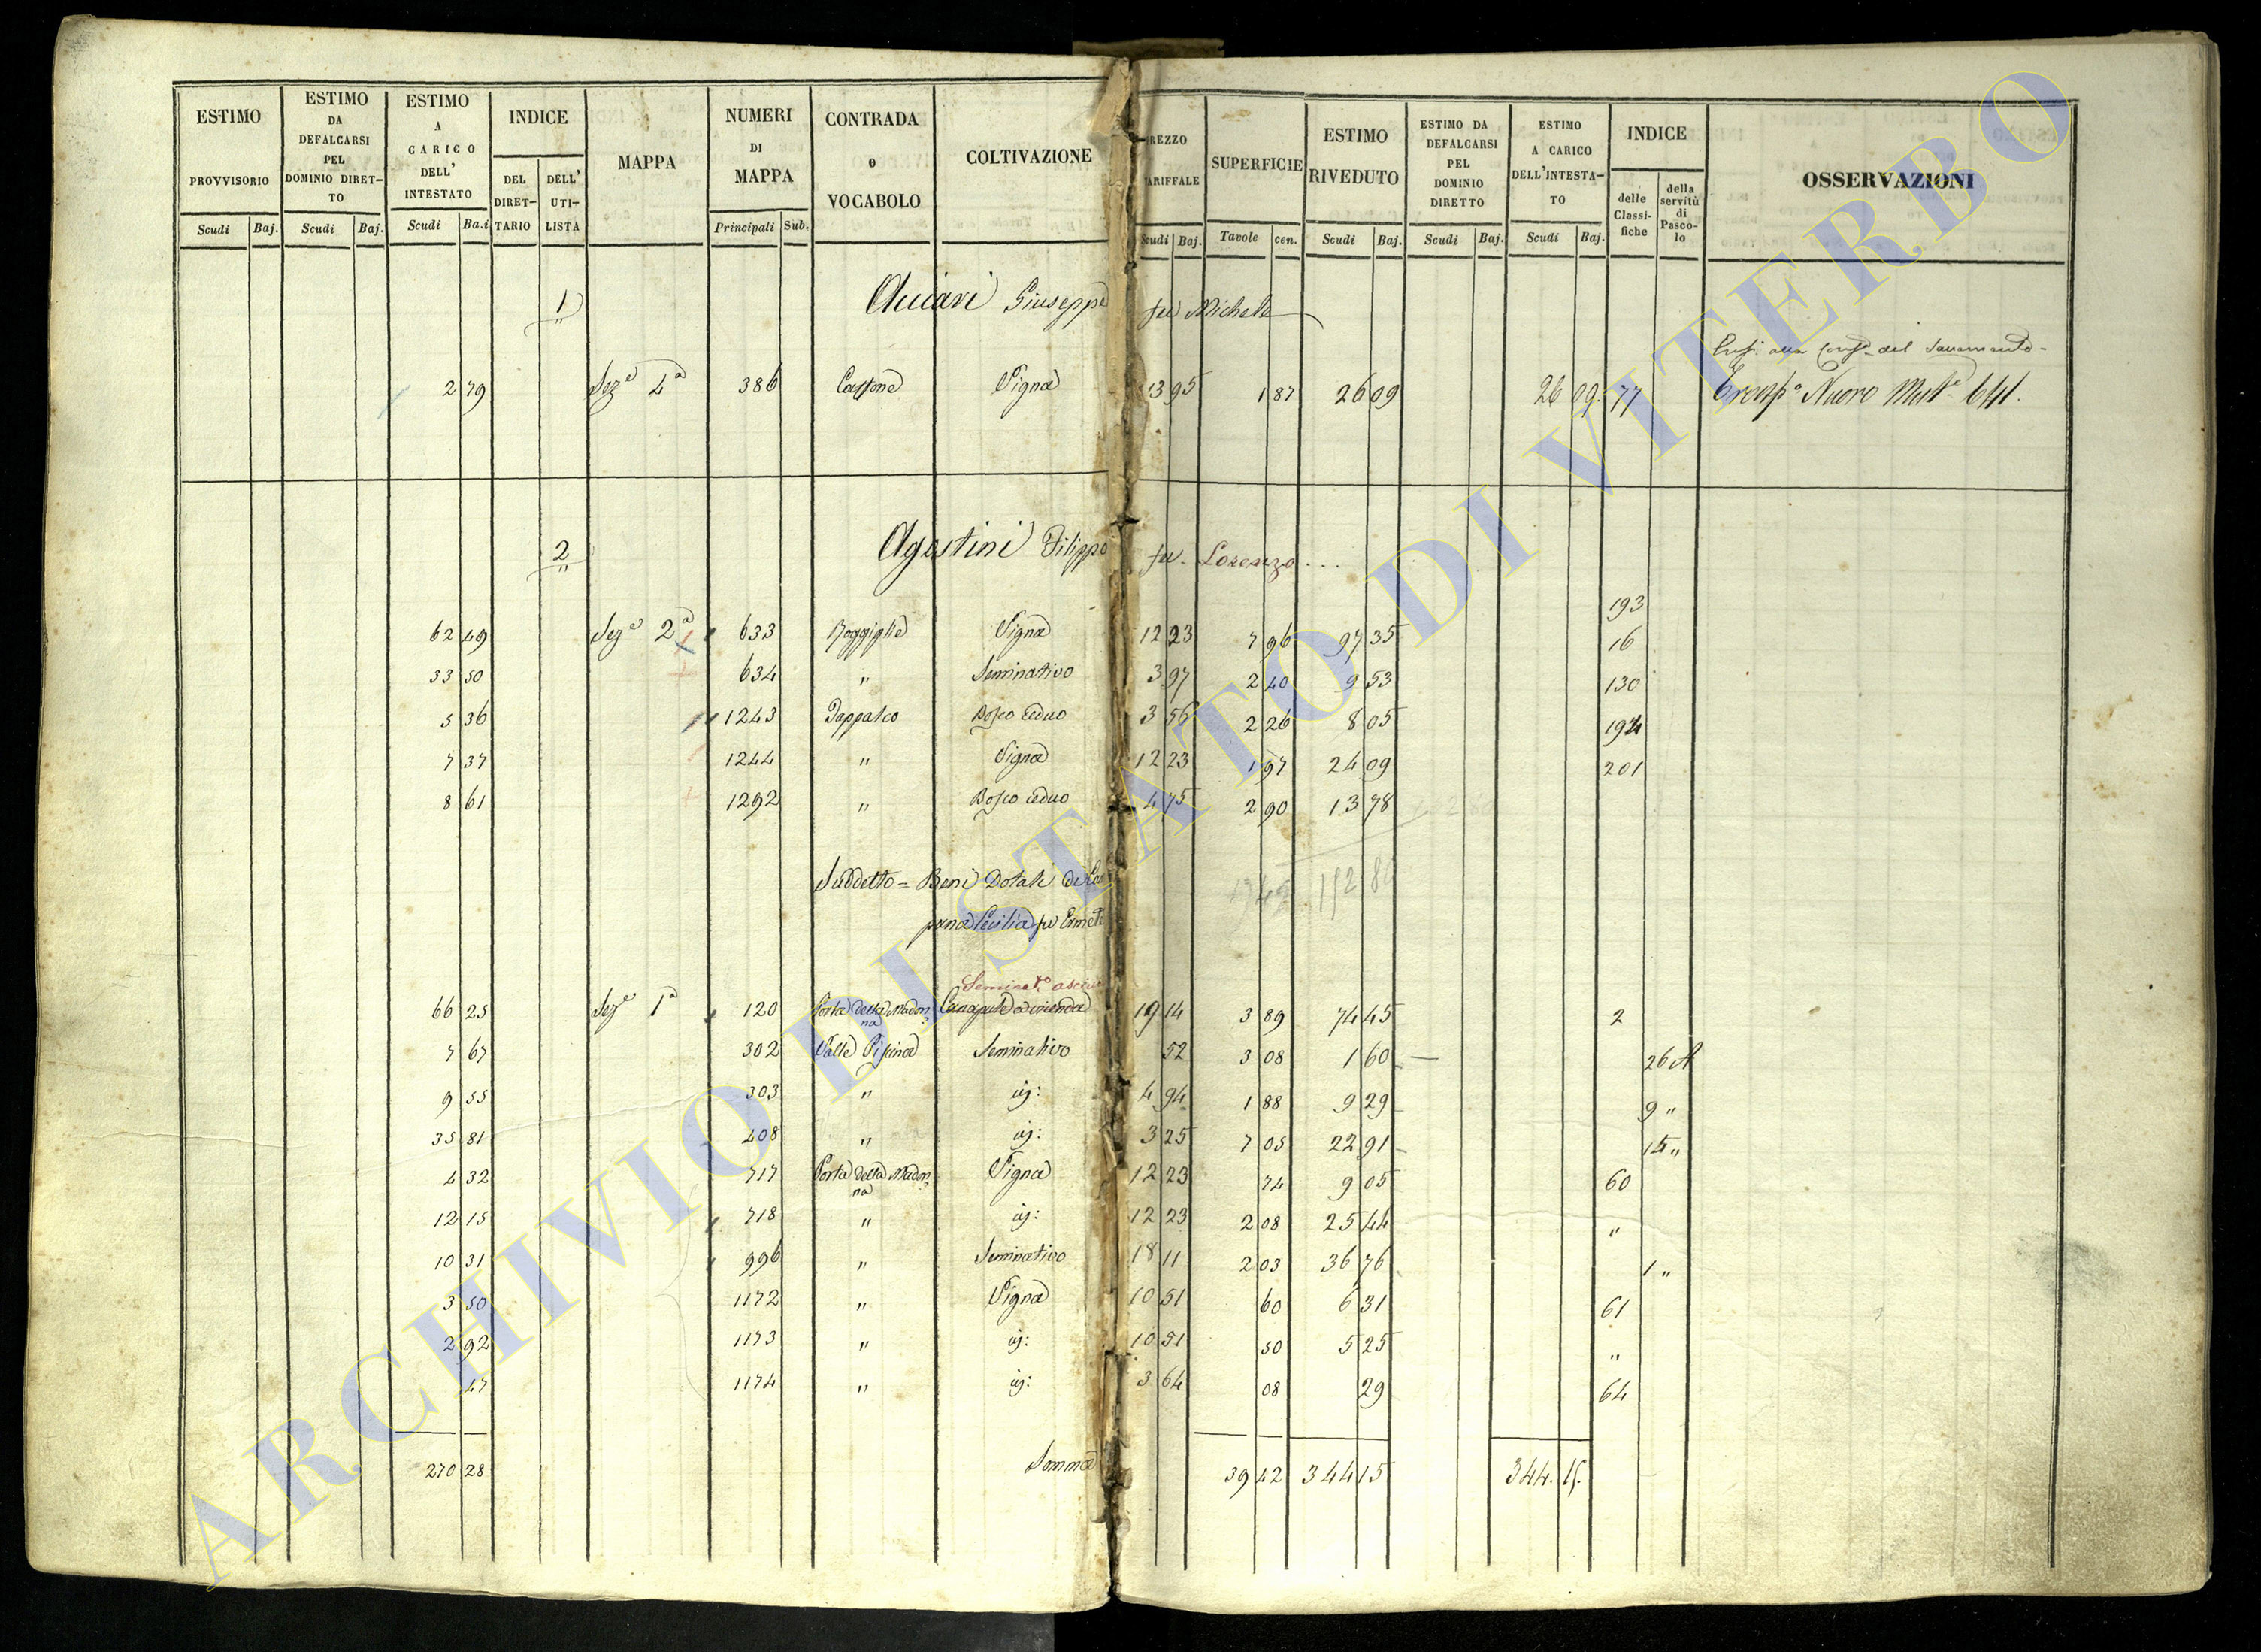 ESTIMO PROVVISORIO Scudi Baj.
ESTIMO DA DEFALCARSI PEL DOMINIO DIRET-TO Scudi Baj.
ESTIMO A CARICO DELL' INTESTATO Scudi Ba.i
INDICE DEL DIRET-TARIO DELL' UTI-LISTA
MAPPA
NUMERI DI MAPPA Principali Sub.
CONTRADA o VOCABOLO
COLTIVAZIONE
PREZZO TARIFFALE Scudi Baj.
SUPERFICIE Tavole cen.
ESTIMO RIVEDUTO Scudi Baj.
ESTIMO DA DEFALCARSI PEL DOMINIO DIRETTO Scudi Baj.
ESTIMO A CARICO DELL'INTESTA-TO Scudi Baj.
INDICE delle Classi-fiche della servitù di Pasco-lo
OSSERVAZIONI
1 Giuseppe fu Michele
del
2 79 Seze 4a 386 Vigna 13 95 1 87 26 09 26 09 77 Nuovo 641.
2 Agostini Filippo fu Lorenzo...
193
62 49 Seze 2a 633 Vigna 12 23 7 96 97 35 16
33 50 634 " Seminativo 3 97 2 40 9 53 130
5 36 1243 Pappalco Bosco ceduo 3 56 2 26 8 05 194
7 37 1244 " Vigna 12 23 1 97 24 09 201
8 61 1292 " Bosco ceduo 4 75 2 90 13 78
Suddetto = Beni Dotali di
152 8
Cecilia fu
Seminato
66 25 Seze 1a 120 Porta della Madonna Canapule a vicenda 19 14 3 89 74 45 2
7 67 302 Valle Piscina Seminativo 52 3 08 1 60 26 A
9 55 303 " ig: 4 94 1 88 9 29 9 "
35 81 408 " ig: 3 25 7 05 22 91 15 "
4 32 717 Porta della Madonna Vigna 12 23 74 9 05 60
12 15 718 " ig: 12 23 2 08 25 44 "
10 31 996 " Seminativo 18 11 2 03 36 76 1 "
3 50 1172 " Vigna 10 51 60 6 31 61
2 92 1173 " ig: 10 51 50 5 25 "
47 1174 " ig: 3 64 08 29 64
270 28 Somma 39 42 344 15 344. 15.
ARCHIVIO DI STATO DI VITERBO